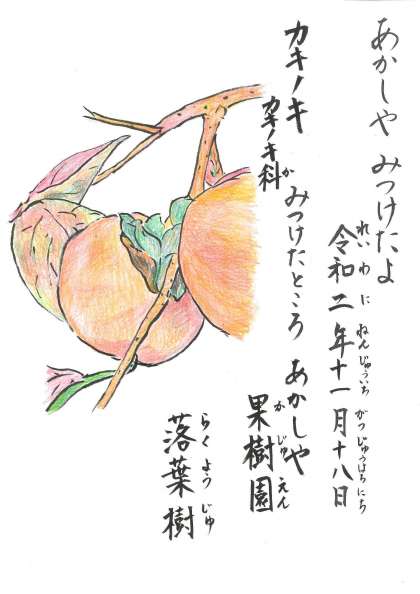 あかしや みつけたよ
令和二年十一月十八日
れいわ に ねんじゅういち がつじゅうはちにち
カキノキ
カキノキ科
か
みつけたところ あかしや
果樹園
かじゅえん
落葉樹
らくようじゅ